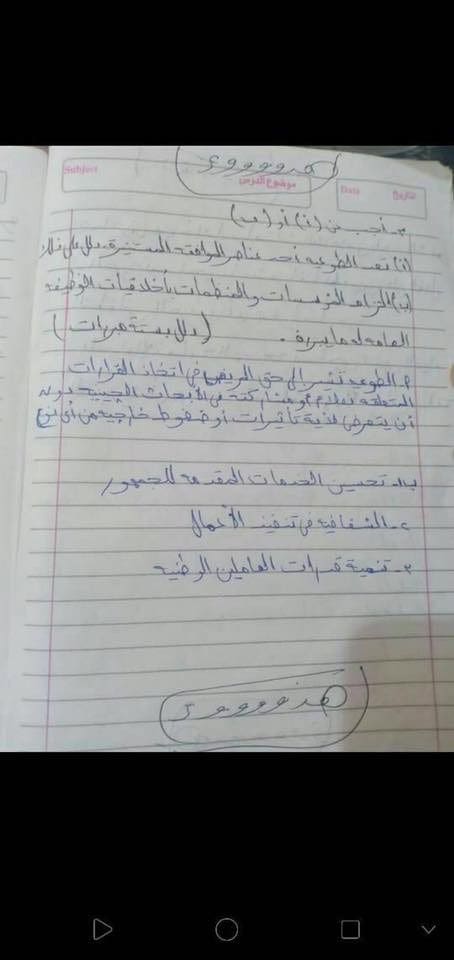 هدووووء
Subject
موضوع الدرس
Date
التاريخ
٣- أجب عن (أ) أو (ب)
(أ) تعد الطوعية أحد عناصر الموافقة المستنيرة. دلل على ذلك
(ب) التزام المؤسسات والمنظمات بأخلاقيات الوظيفة
العامة له ما يبرره. (دلل بستة مبررات)
أ- الطوعية تشير إلى حق المريض في اتخاذ القرارات
المتعلقة بعلاجه أو مشاركته في الأبحاث الطبية دون
أن يتعرض لأية تأثيرات أو ضغوط خارجية من أي نوع
ب- ١- تحسين الخدمات المقدمة للجمهور
٢- الشفافية في تنفيذ الأعمال
٣- تنمية قدرات العاملين الوظيفية
هدووووء